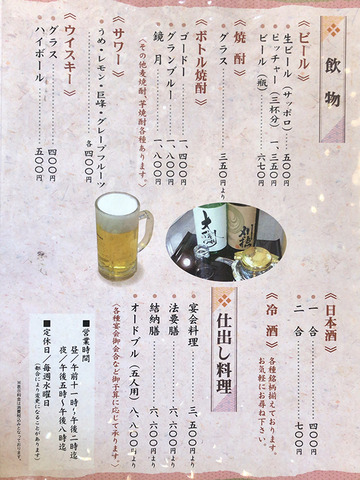 飲物
《ビール》
生ビール（サッポロ） 五〇〇円
ピッチャー（三杯分） 一、三五〇円
ビール（瓶） 六七〇円
《焼酎》
グラス 三五〇円より
《ボトル焼酎》
ゴードー 一、四〇〇円
グランブルー 一、八〇〇円
鏡月 一、八〇〇円
（その他麦焼酎、芋焼酎各種あります。）
《サワー》
うめ・レモン・巨峰・グレープフルーツ
各四〇〇円
《ウイスキー》
グラス 四〇〇円
ハイボール 五〇〇円
《日本酒》
一合 四〇〇円
二合 七〇〇円
《冷酒》
各種銘柄揃えております。
お気軽にお尋ね下さい。
仕出し料理
宴会料理 三、五〇〇円より
法要膳 六、六〇〇円より
結納膳 六、六〇〇円より
オードブル（五人用） 八、八〇〇円より
（各種宴会御会合など御予算に応じて承ります。）
■営業時間
昼／午前十一時〜午後二時迄
夜／午後五時〜午後八時迄
■定休日／毎週水曜日
（都合により変更になることがあります）